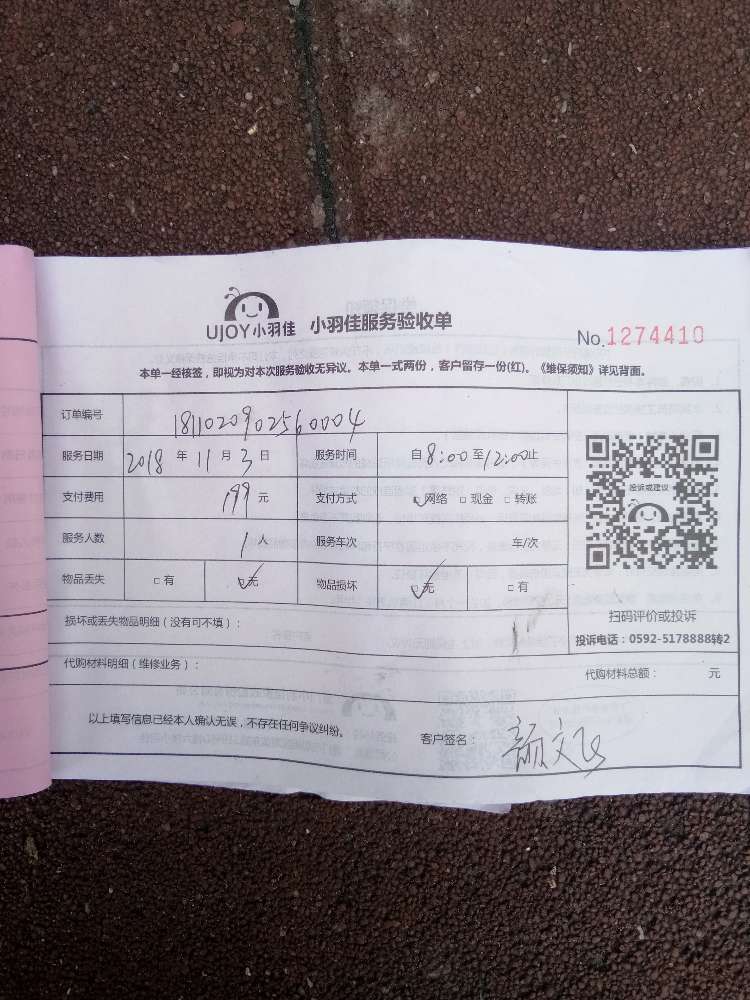 UJOY小羽佳 小羽佳服务验收单
No.1274410
本单一经核签，即视为对本次服务验收无异议。本单一式两份，客户留存一份(红)。《维保须知》详见背面。
订单编号 1811020902560004
服务日期 2018 年 11 月 3 日 服务时间 自 8:00 至 12:00 止
支付费用 199 元 支付方式 ☑网络 □现金 □转账
服务人数 1 人 服务车次 车/次
物品丢失 □有 ☑无 物品损坏 ☑无 □有
投诉或建议
扫码评价或投诉
投诉电话：0592-5178888转2
损坏或丢失物品明细（没有可不填）：
代购材料明细（维修业务）： 代购材料总额： 元
以上填写信息已经本人确认无误，不存在任何争议纠纷。 客户签名： 颜文飞